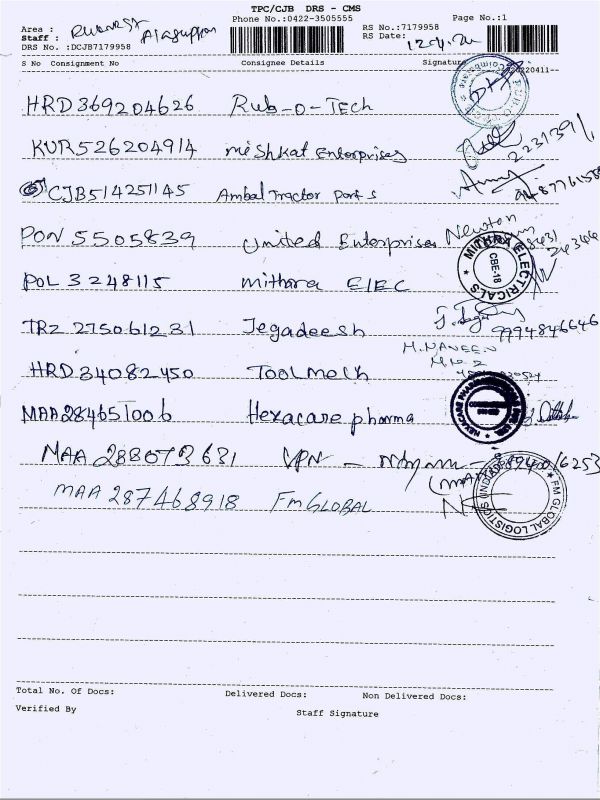 TPC/CJB DRS - CMS
Phone No.:0422-3505555 Page No.:1
Area : RS No.:7179958
Staff : Alaguppan RS Date: 12.4.24
DRS No. :DCJB7179958
S No Consignment No Consignee Details Signature
HRD369204626 Rub-O-Tech
KUR526204914 Meshkat Enterprises 2231391
CJB514251145 Ambal Tractor Parts
PON 5505839 United Enterprises Newton
POL 3248115 Mithara ELEC MITHRA ELECTRICALS CBE-18
TRZ 275061231 Jegadeesh 9994846646
HRD34082450 Toolmech M. NAVEEN
MAA284651006 Hexacare pharma
MAA 288073631 VPN -
MAA 287468918 FM GLOBAL FM GLOBAL LOGISTICS (INDIA)
Total No. Of Docs: Delivered Docs: Non Delivered Docs:
Verified By Staff Signature